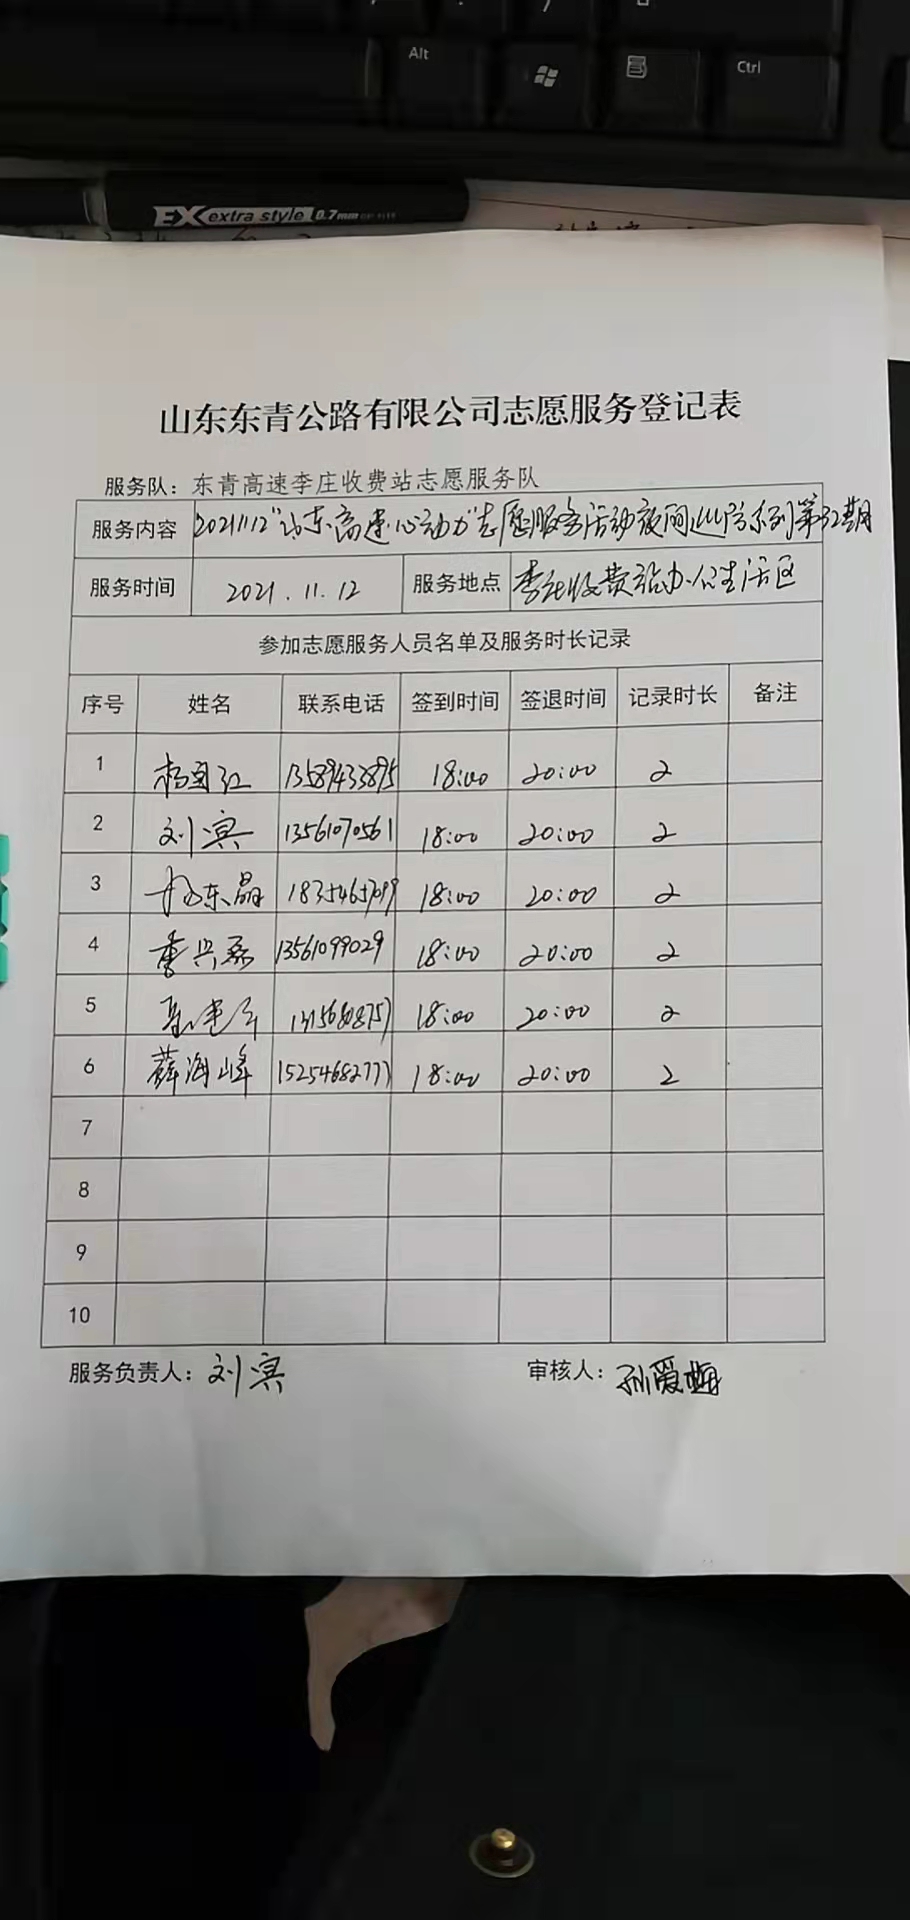 Alt
Ctrl
EX extra style 0.7mm
山东东青公路有限公司志愿服务登记表
服务队：东青高速李庄收费站志愿服务队
服务内容 20211112"山东高速·心动力"志愿服务活动夜间巡逻系列第32期
服务时间 2021.11.12 服务地点 李庄收费站办公生活区
参加志愿服务人员名单及服务时长记录
序号 姓名 联系电话 签到时间 签退时间 记录时长 备注
1 杨 红 13589433895 18:00 20:00 2
2 刘 13561070561 18:00 20:00 2
3 东晶 18:00 20:00 2
4 李兴磊 13561099029 18:00 20:00 2
5 18:00 20:00 2
6 薛海峰 15254682777 18:00 20:00 2
7
8
9
10
服务负责人：刘 审核人：孙爱梅